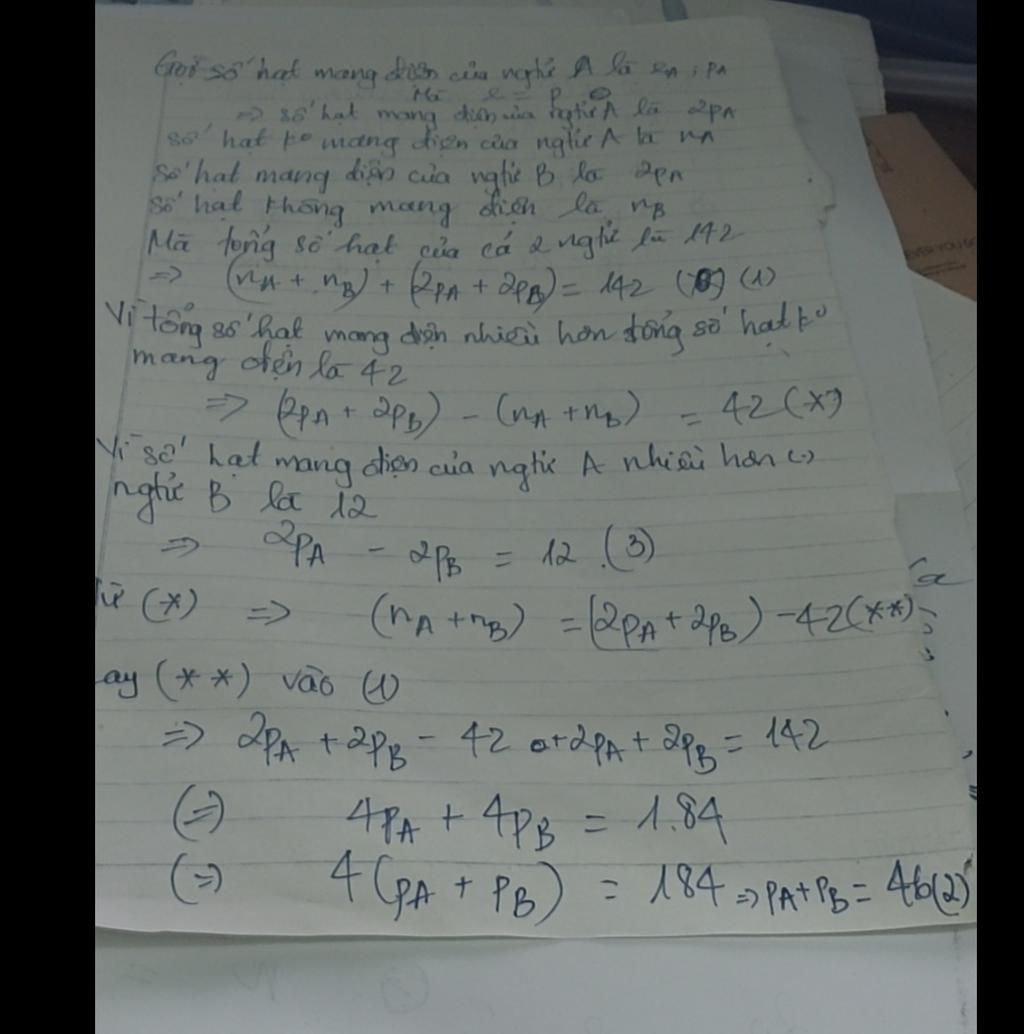 Gọi số hạt mang điện của ngtử A là eA; pA
Mà e = p
=> số hạt mang điện của ngtử A là 2pA
số hạt ko mang điện của ngtử A là nA
Số hạt mang điện của ngtử B là 2pA
Số hạt không mang điện là nB
Mà tổng số hạt của cả 2 ngtử là 142
=> (nA + nB) + (2pA + 2pB) = 142 (1)
Vì tổng số hạt mang điện nhiều hơn tổng số hạt ko
mang điện là 42
=> (2pA + 2pB) - (nA + nB) = 42 (*)
Vì số hạt mang điện của ngtử A nhiều hơn
ngtử B là 12
=> 2pA - 2pB = 12 . (3)
Từ (*) => (nA + nB) = (2pA + 2pB) - 42 (**)
ay (**) vào (1)
=> 2pA + 2pB - 42 + 2pA + 2pB = 142
(=) 4pA + 4pB = 1.84
(=) 4(pA + pB) = 184 => pA + pB = 46 (2)